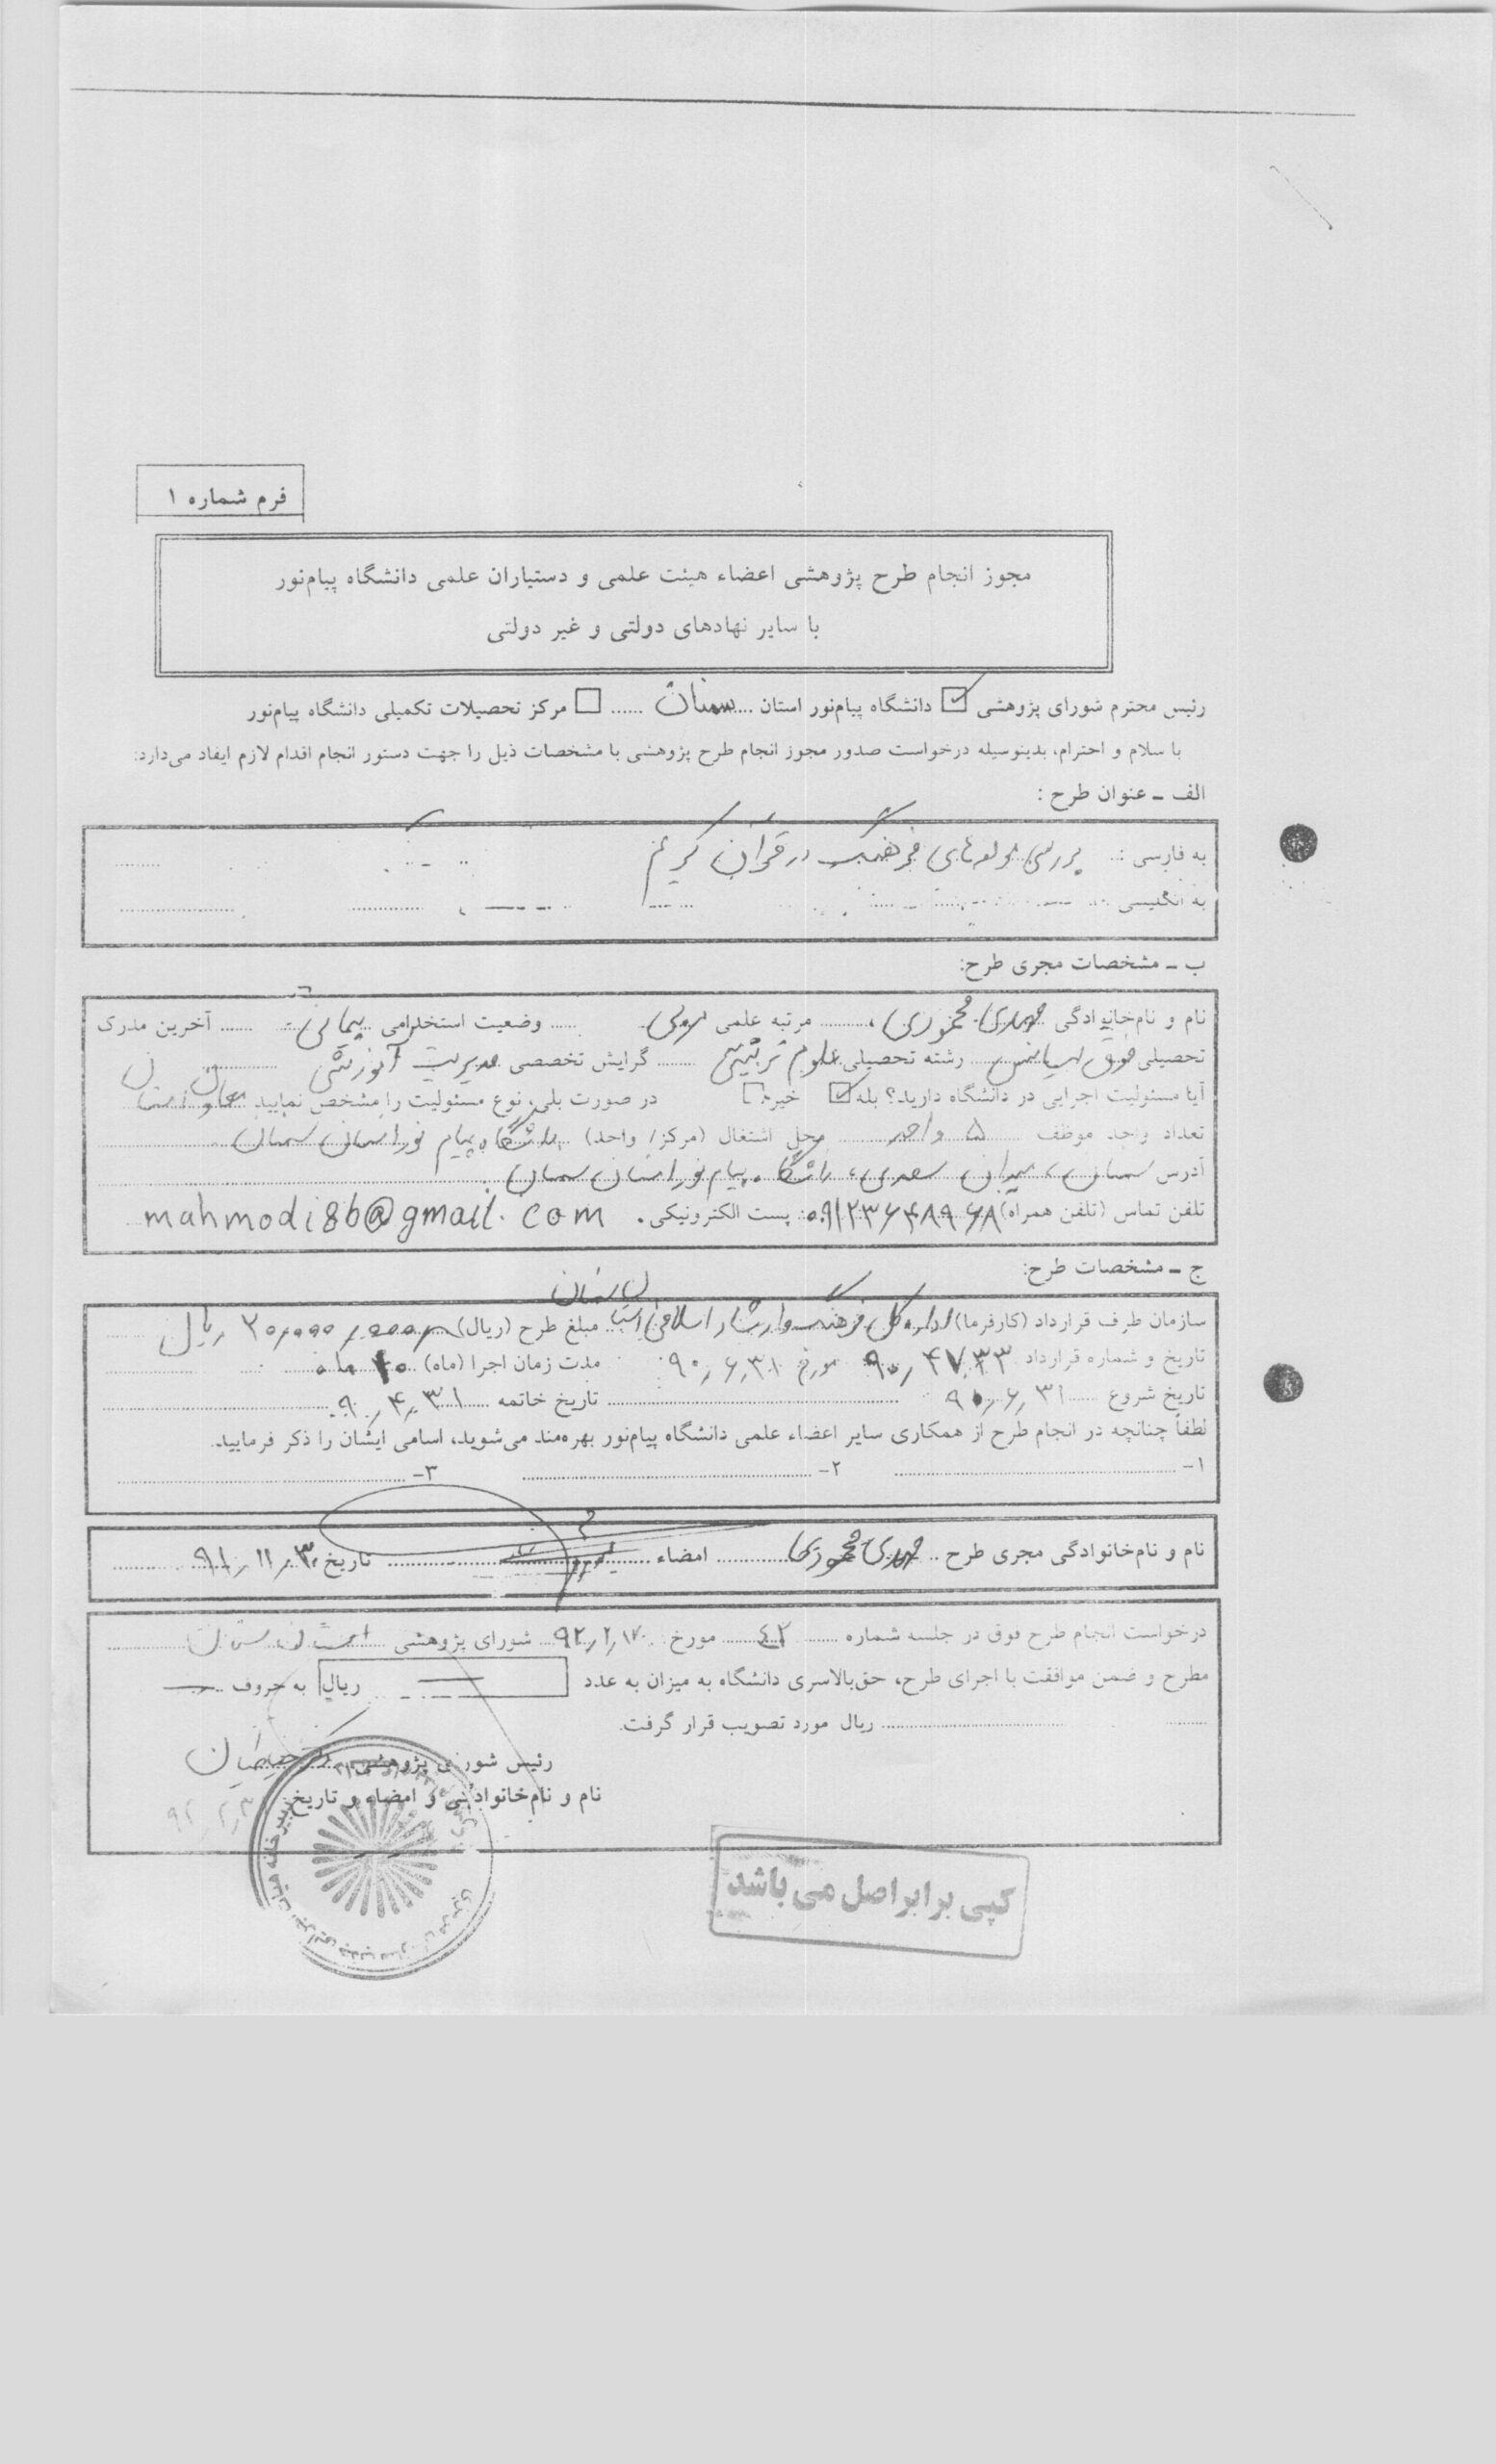 فرم شماره ۱
مجوز انجام طرح پژوهشی اعضاء هیئت علمی و دستیاران علمی دانشگاه پیام‌نور
با سایر نهادهای دولتی و غیر دولتی
رئیس محترم شورای پژوهشی دانشگاه پیام‌نور استان ... سمنان ... مرکز تحصیلات تکمیلی دانشگاه پیام‌نور
با سلام و احترام، بدینوسیله درخواست صدور مجوز انجام طرح پژوهشی با مشخصات ذیل را جهت دستور انجام اقدام لازم ایفاد می‌دارد:
الف ـ عنوان طرح :
به فارسی : بررسی مولفه‌های فرهنگ در قرآن کریم
به انگلیسی
ب ـ مشخصات مجری طرح:
نام و نام‌خانوادگی مهدی محمودی مرتبه علمی مربی وضعیت استخدامی پیمانی آخرین مدرک
تحصیلی فوق لیسانس رشته تحصیلی علوم تربیتی گرایش تخصصی مدیریت آموزشی
آیا مسئولیت اجرایی در دانشگاه دارید؟ بله خیر در صورت بلی، نوع مسئولیت را مشخص نمایید
تعداد واحد موظف ۵ واحد محل اشتغال (مرکز/ واحد) دانشگاه پیام نور استان سمنان
آدرس سمنان، میدان سعدی، دانشگاه پیام نور استان سمنان
تلفن تماس (تلفن همراه) ۰۹۱۲۳۶۴۸۹۶۸ پست الکترونیکی mahmodi86@gmail.com
ج ـ مشخصات طرح:
سازمان طرف قرارداد (کارفرما) اداره کل فرهنگ و ارشاد اسلامی استان سمنان مبلغ طرح (ریال) ۲۰/۰۰۰/۰۰۰ ریال
تاریخ و شماره قرارداد ۹۰/۴۷۳۳ مورخ ۹۰/۶/۳۱ مدت زمان اجرا (ماه) ۱۰ ماه
تاریخ شروع ۹۰/۶/۳۱ تاریخ خاتمه ۹۰/۴/۳۱
لطفاً چنانچه در انجام طرح از همکاری سایر اعضاء علمی دانشگاه پیام‌نور بهره‌مند می‌شوید، اسامی ایشان را ذکر فرمایید.
۱- ۲- ۳-
نام و نام‌خانوادگی مجری طرح مهدی محمودی امضاء تاریخ ۹۱/۱۱/۳۰
درخواست انجام طرح فوق در جلسه شماره ۴۲ مورخ ۹۲/۲/۱۷ شورای پژوهشی استان سمنان
مطرح و ضمن موافقت با اجرای طرح، حق‌بالاسری دانشگاه به میزان به عدد ریال به حروف
ریال مورد تصویب قرار گرفت.
رئیس شورای پژوهشی دکتر
نام و نام‌خانوادگی و امضاء و تاریخ
کپی برابر اصل می باشد